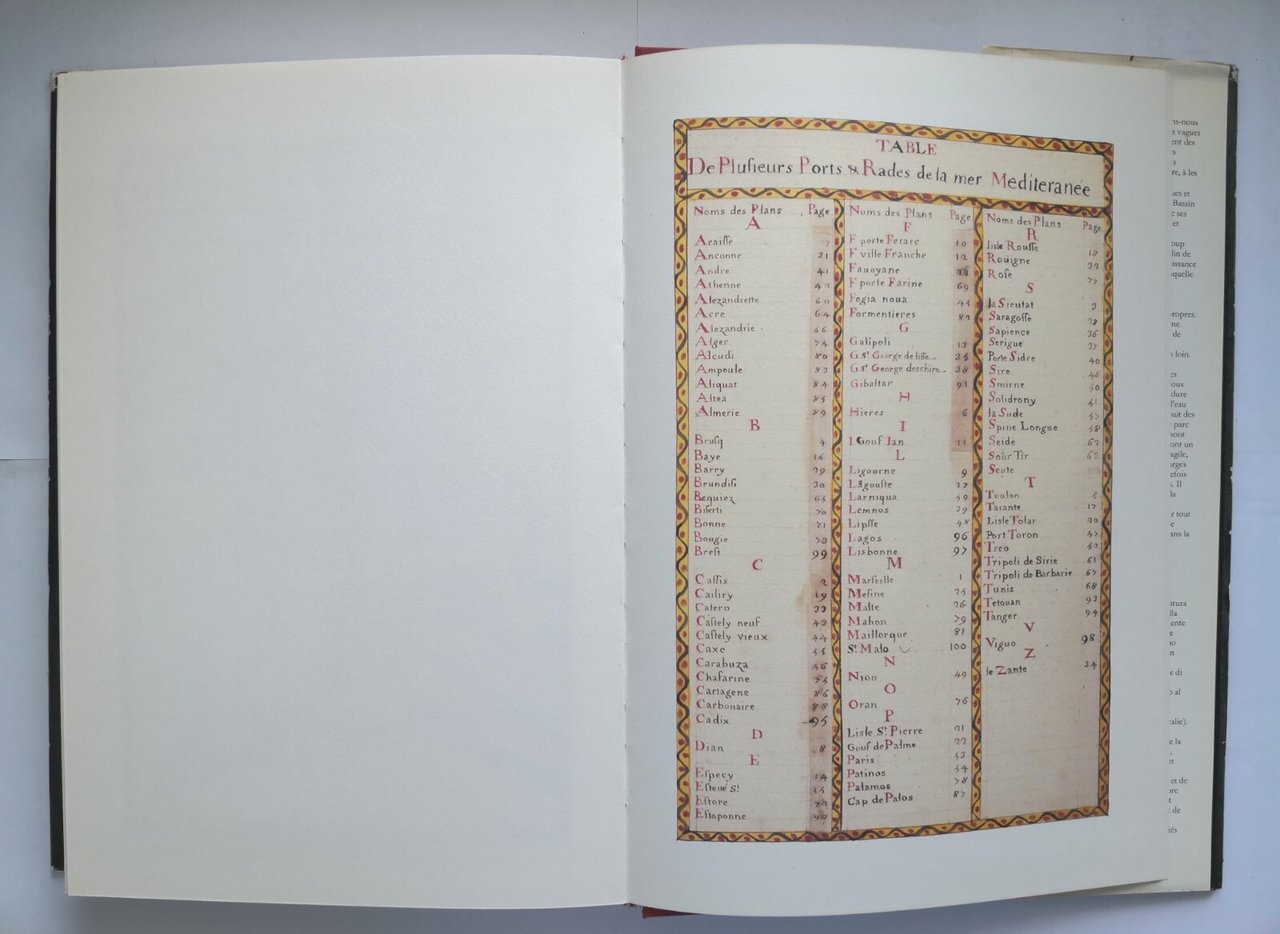 TABLE
De Plusieurs Ports & Rades de la mer Mediteranée
Noms des Plans Page
A
Araisse 7
Anconne 31
Andre 41
Athenne 42
Alezandrette 60
Acre 64
Alezandrie 66
Alger 74
Alcudi 80
Ampoule 83
Aliquat 84
Altea 85
Almerie 89
B
Brusq 4
Baye 16
Barry 29
Brundisi 30
Bequiez 65
Biserti 70
Bonne 71
Bougie
Brest 99
C
Cassis 2
Cailiry 19
Catero 33
Castely neuf 43
Castely vieux 44
Caxe
Carabuza 56
Chafarine 75
Cartagene 86
Carbonaire 88
Cadix 95
D
Dian 8
E
Especy 14
Esteue St. 15
Estore
Estoponne 90
Noms des Plans Page
F
F porte Ferare 10
F ville Franche 12
Fauoyane
F porte Farine 69
Fogia noua
Formentieres 82
G
Galipoli 13
G St. George de lisse 35
G St. George deschiro 38
Gibaltar 91
H
Hieres 6
I
I Gouf Ian 11
L
Ligourne 9
Lagouste 27
Larniqua 59
Lemnos
Lipsse 48
Lagos 96
Lisbonne 97
M
Marseille 1
Mesine 25
Malte 26
Mahon 79
Maillorque 81
St. Malo 100
N
Niou 49
O
Oran 76
P
Lisle St. Pierre 21
Gouf de Palme 22
Paris 53
Patinos 54
Palamos 78
Cap de Palos 87
Noms des Plans Page
R
lisle Rousse 18
Rouigne 32
Rose 77
S
la Sieutat 3
Saragosse 28
Sapience 36
Serigue 37
Porte Sidre 40
Sire 46
Smirne 50
Solidrony 51
la Sude
Spine Longue 58
Seide 62
Sour Tir 63
Seute
T
Toulon 5
Tarante 17
Lisle Tolar 20
Port Toron 47
Treo 52
Tripoli de Sirie 61
Tripoli de Borbarie 67
Tunis 68
Tetouan 93
Tanger 94
V
Viguo 98
Z
le Zante 34